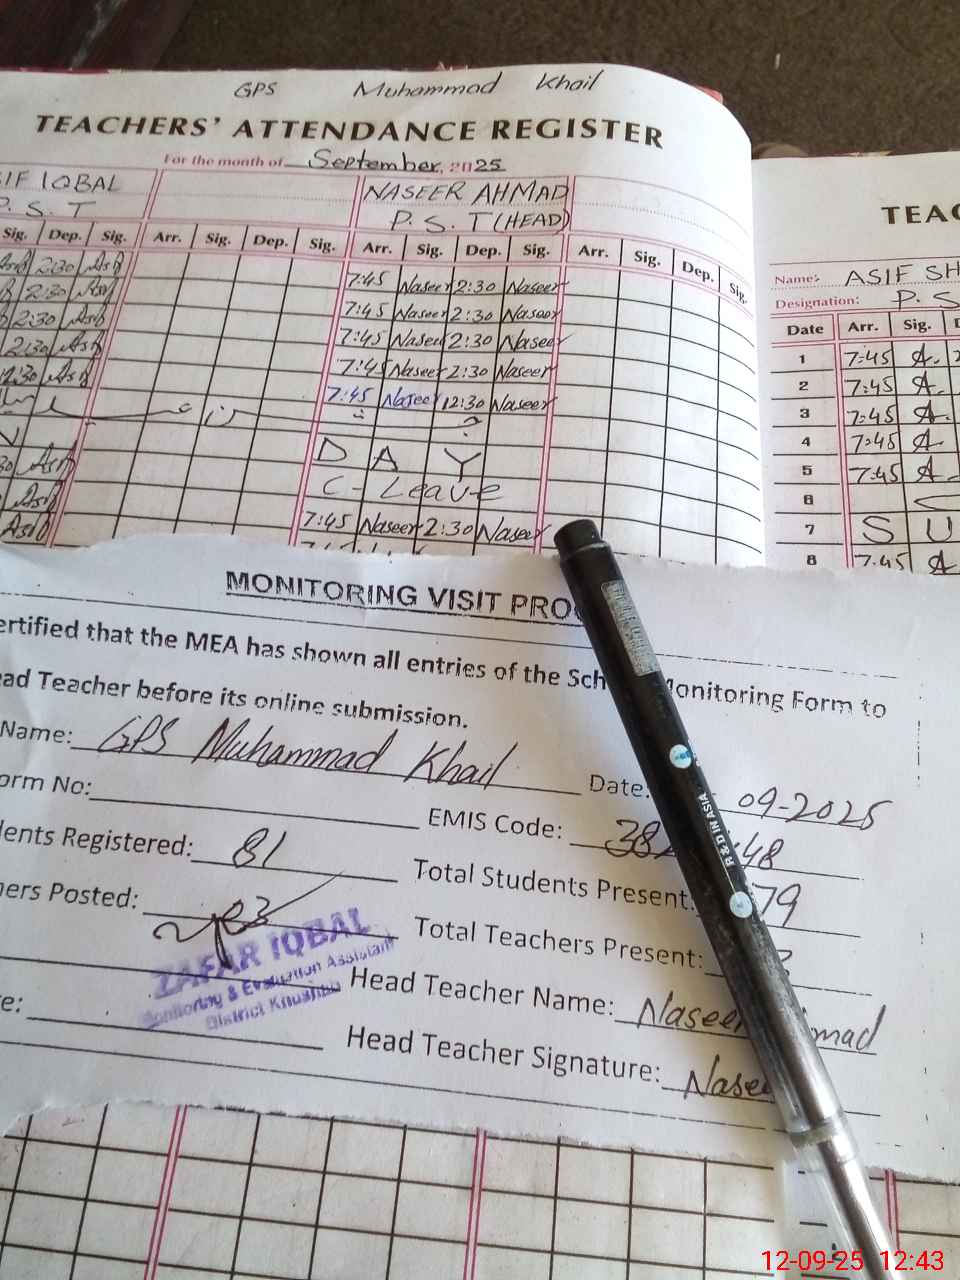 GPS Muhammad Khail
TEACHERS' ATTENDANCE REGISTER
For the month of September, 2025
IF IQBAL
P. S. T
NASEER AHMAD
P. S. T (HEAD)
Sig. Dep. Sig. Arr. Sig. Dep. Sig. Arr. Sig. Dep. Sig. Arr. Sig. Dep. Sig.
2:30 7:45 Naseer 2:30 Naseer
2:30 7:45 Naseer 2:30 Naseer
2:30 7:45 Naseer 2:30 Naseer
2:30 7:45 Naseer 2:30 Naseer
12:30 7:45 Naseer 12:30 Naseer
D A Y
C- Leave
7:45 Naseer 2:30 Naseer
TEAC
Name:- ASIF SH
Designation: P. S
Date Arr. Sig. D
1 7:45 A.
2 7:45 A.
3 7:45 A.
4 7:45 A
5 7:45 A.
6
7 S U
8 7:45 A
MONITORING VISIT PRO
ertified that the MEA has shown all entries of the Sch Monitoring Form to
ad Teacher before its online submission.
Name: GPS Muhammad Khail Date: 09-2025
orm No: EMIS Code: 38 48
dents Registered: 81 Total Students Present: 79
hers Posted: 03 Total Teachers Present:
ZAFAR IQBAL
Monitoring & Evaluation Assistant
District Khushab
Head Teacher Name: Naseer hmad
re: Head Teacher Signature: Nasee
R & D IN ASIA
12-09-25 12:43